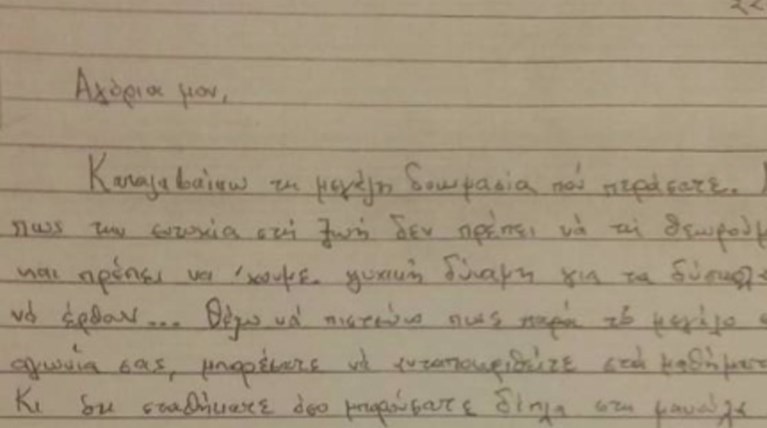 Αγόρια μου,
Καταλαβαίνω τη μεγάλη δοκιμασία πού περάσατε.
πως την ευτυχία στή ζωή δεν πρέπει νά τή θεωρούμ
και πρέπει να 'χουμε ψυχική δύναμη για τα δύσκολ
νά έρθουν... Θέλω νά πιστεύω πως παρά τό μεγάλο
αγωνία σας, μπορέσατε νά ανταποκριθείτε στά μαθήματ
Κι δω σταθήκατε όσο μπορούσατε δίπλα στη μανούλα